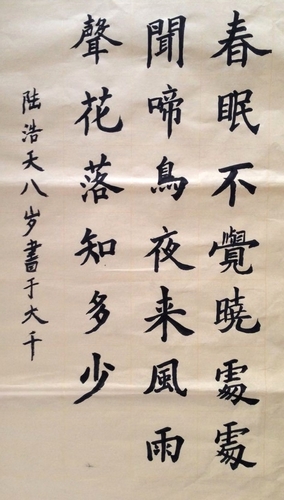 春眠不覺曉處處
聞啼鳥夜来風雨
聲花落知多少
陆浩天八岁書于大千